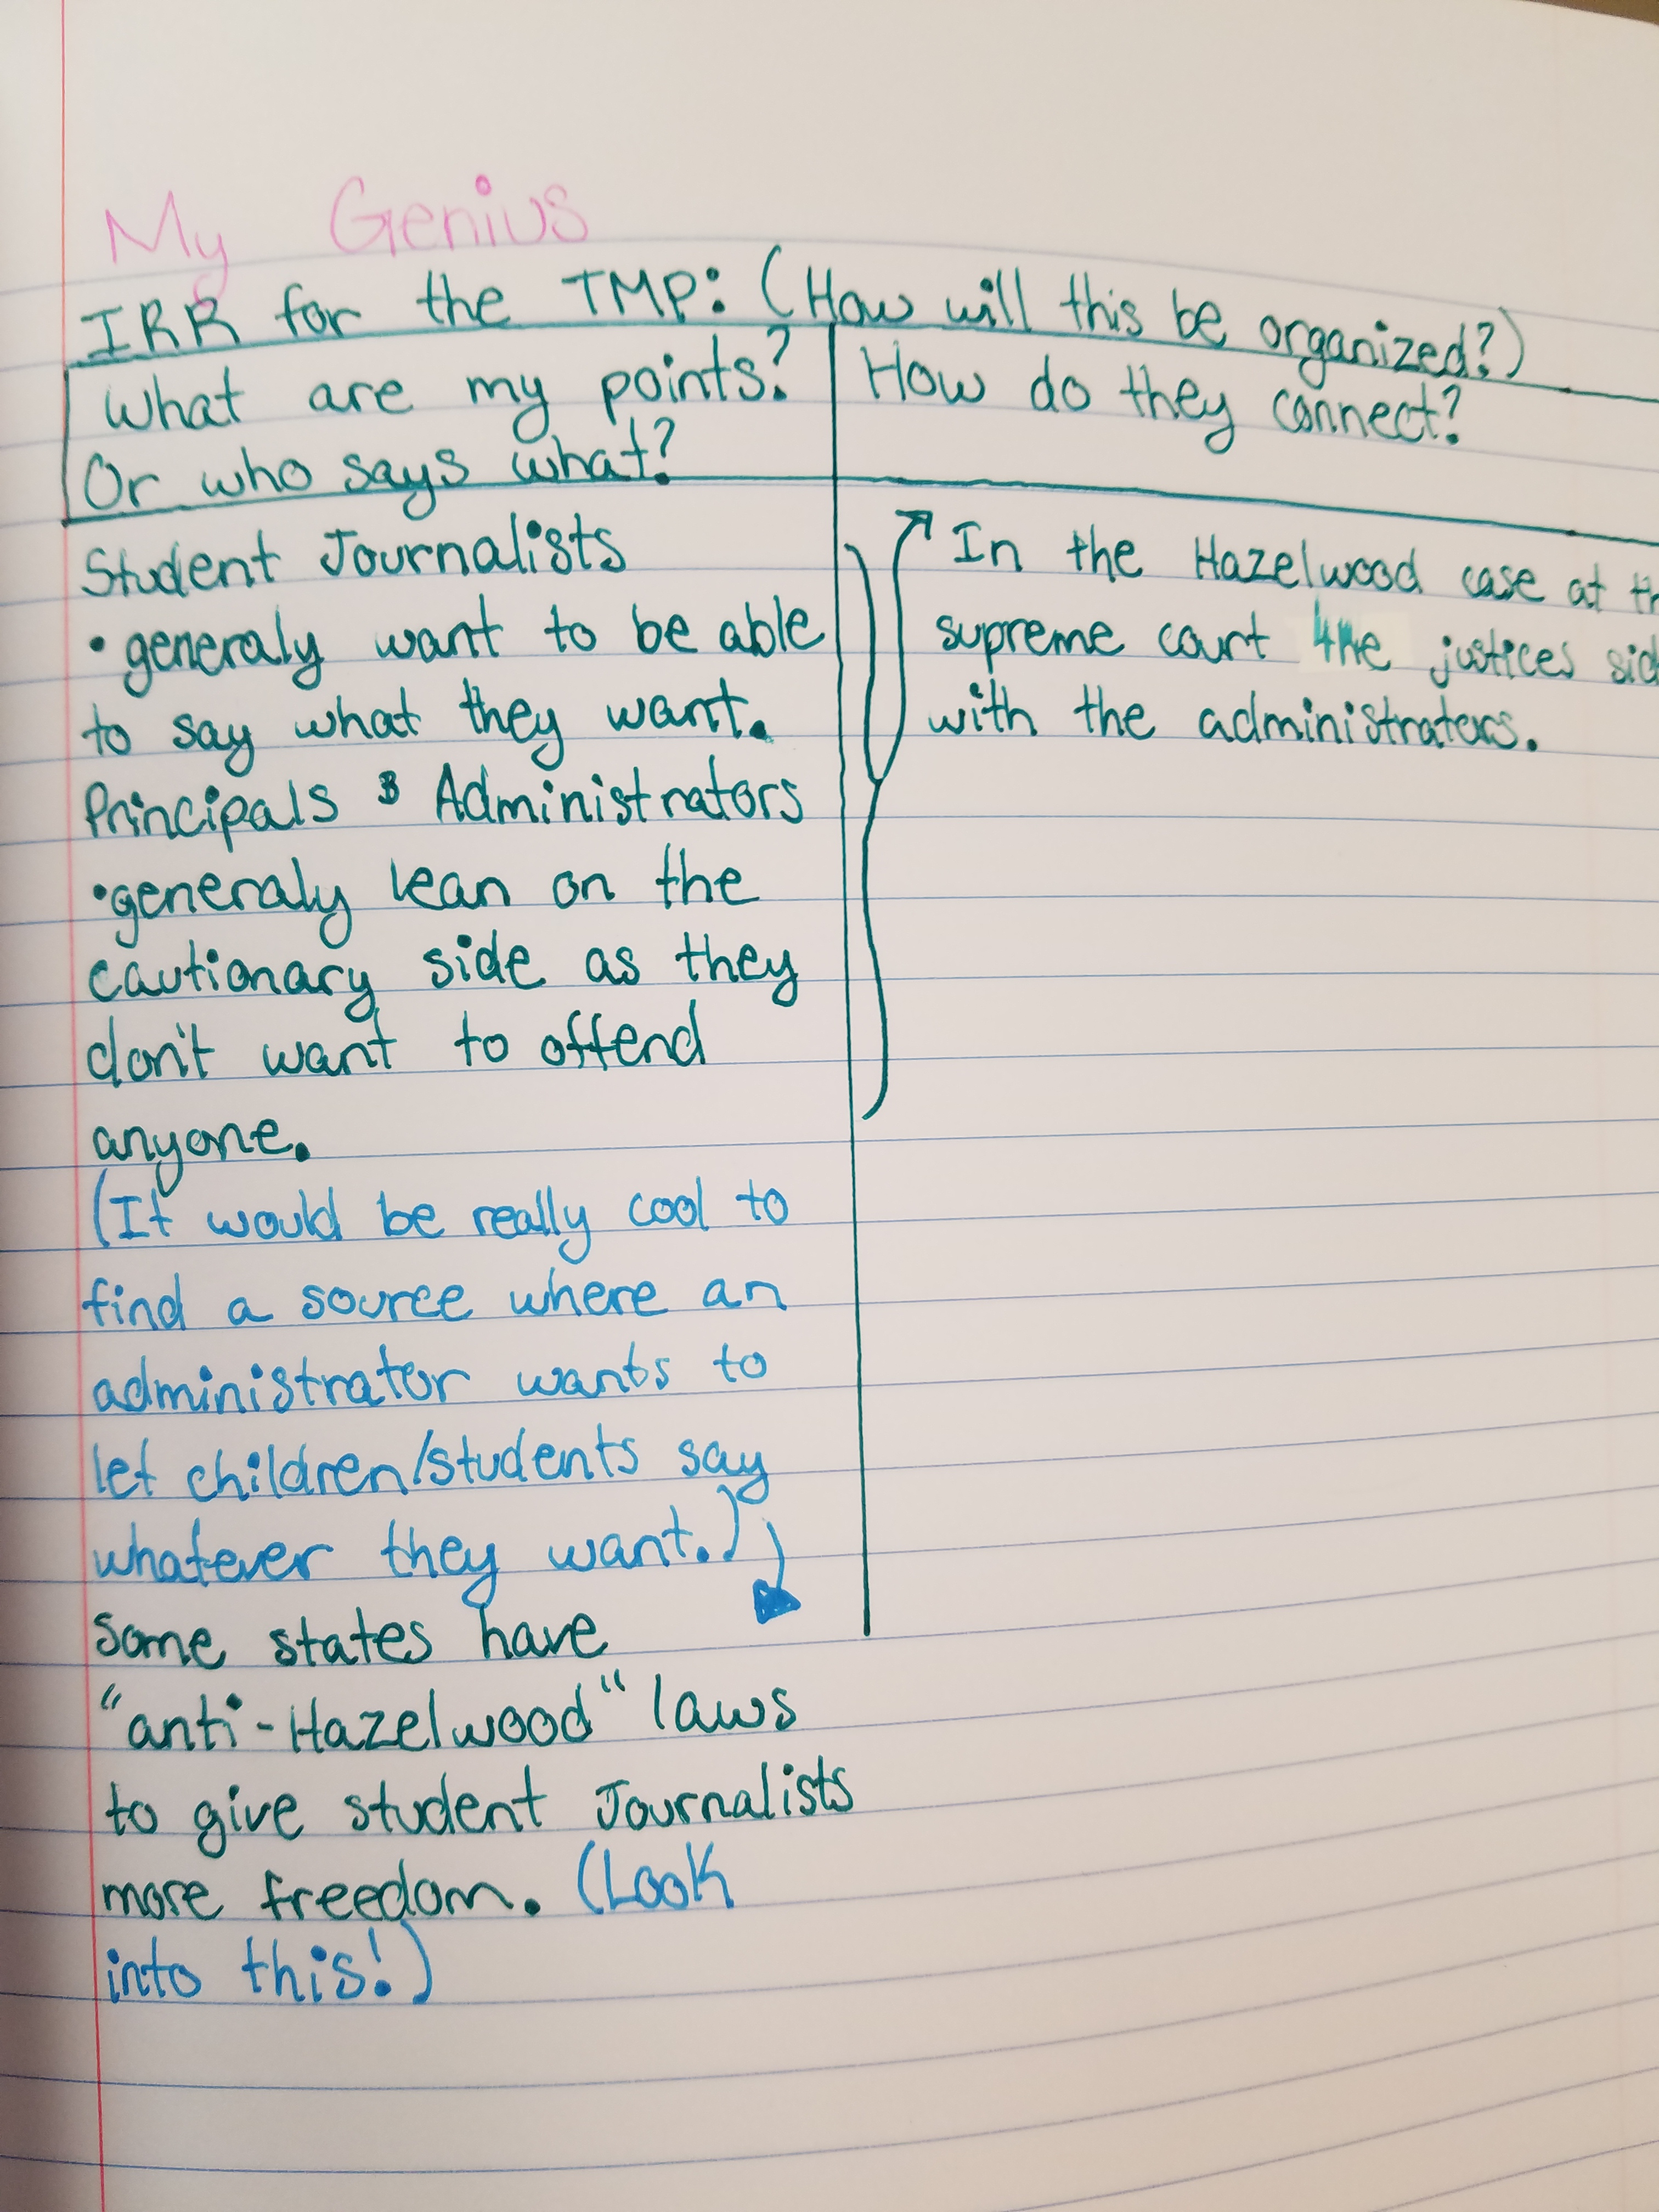 My Genius
IRR for the TMP: (How will this be organized?)
What are my points?
Or who says what?
How do they connect?
Student Journalists
• generaly want to be able
to say what they want.
Principals & Administrators
• generaly lean on the
cautionary side as they
don't want to offend
anyone.
(It would be really cool to
find a source where an
administrator wants to
let children/students say
whatever they want.)
Some states have
"anti-Hazelwood" laws
to give student Journalists
more freedom. (Look
into this!)
In the Hazelwood case at
supreme court the justices
with the administrators.